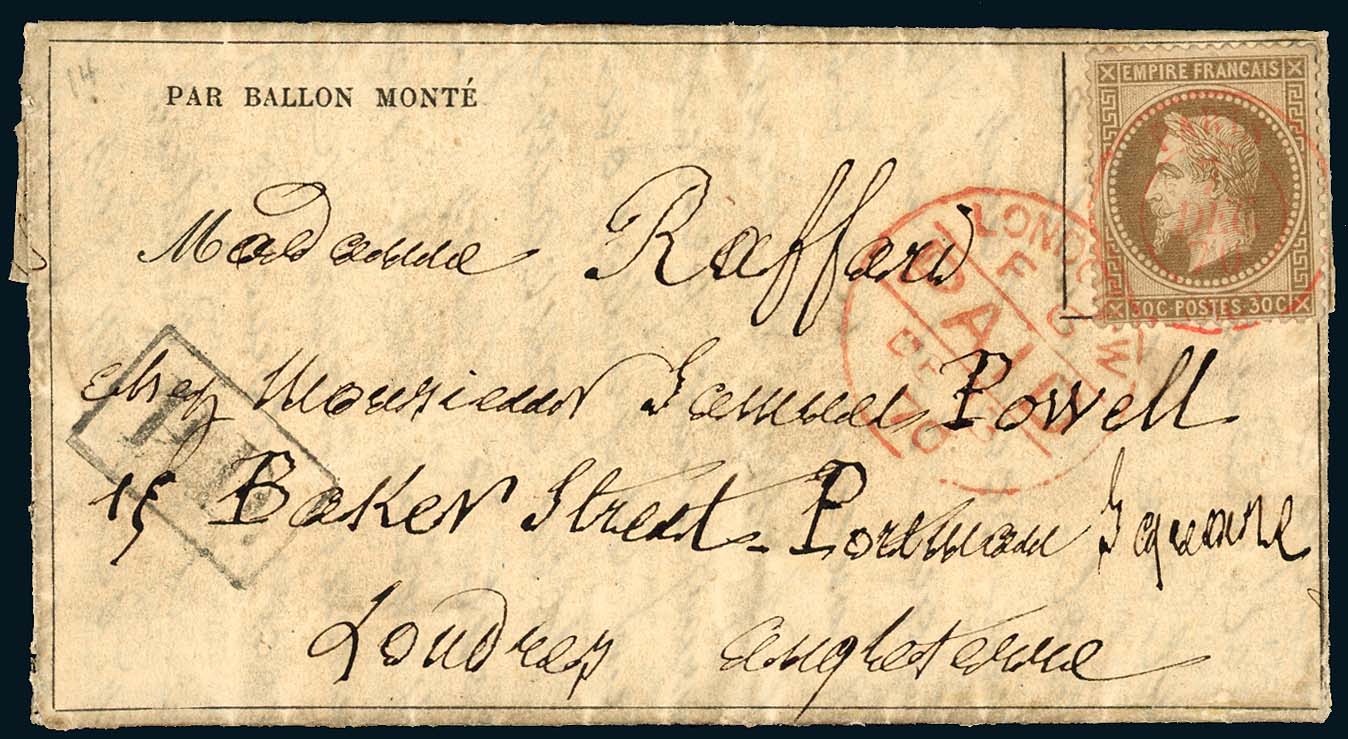 14
PAR BALLON MONTÉ
EMPIRE FRANCAIS
30C·POSTES·30C
DEC
70
LONDON W
F
PAID
70
Madame Raffard
chez Monsieur Samuel Powell
15 Baker Street - Portman Square
Londres angleterre